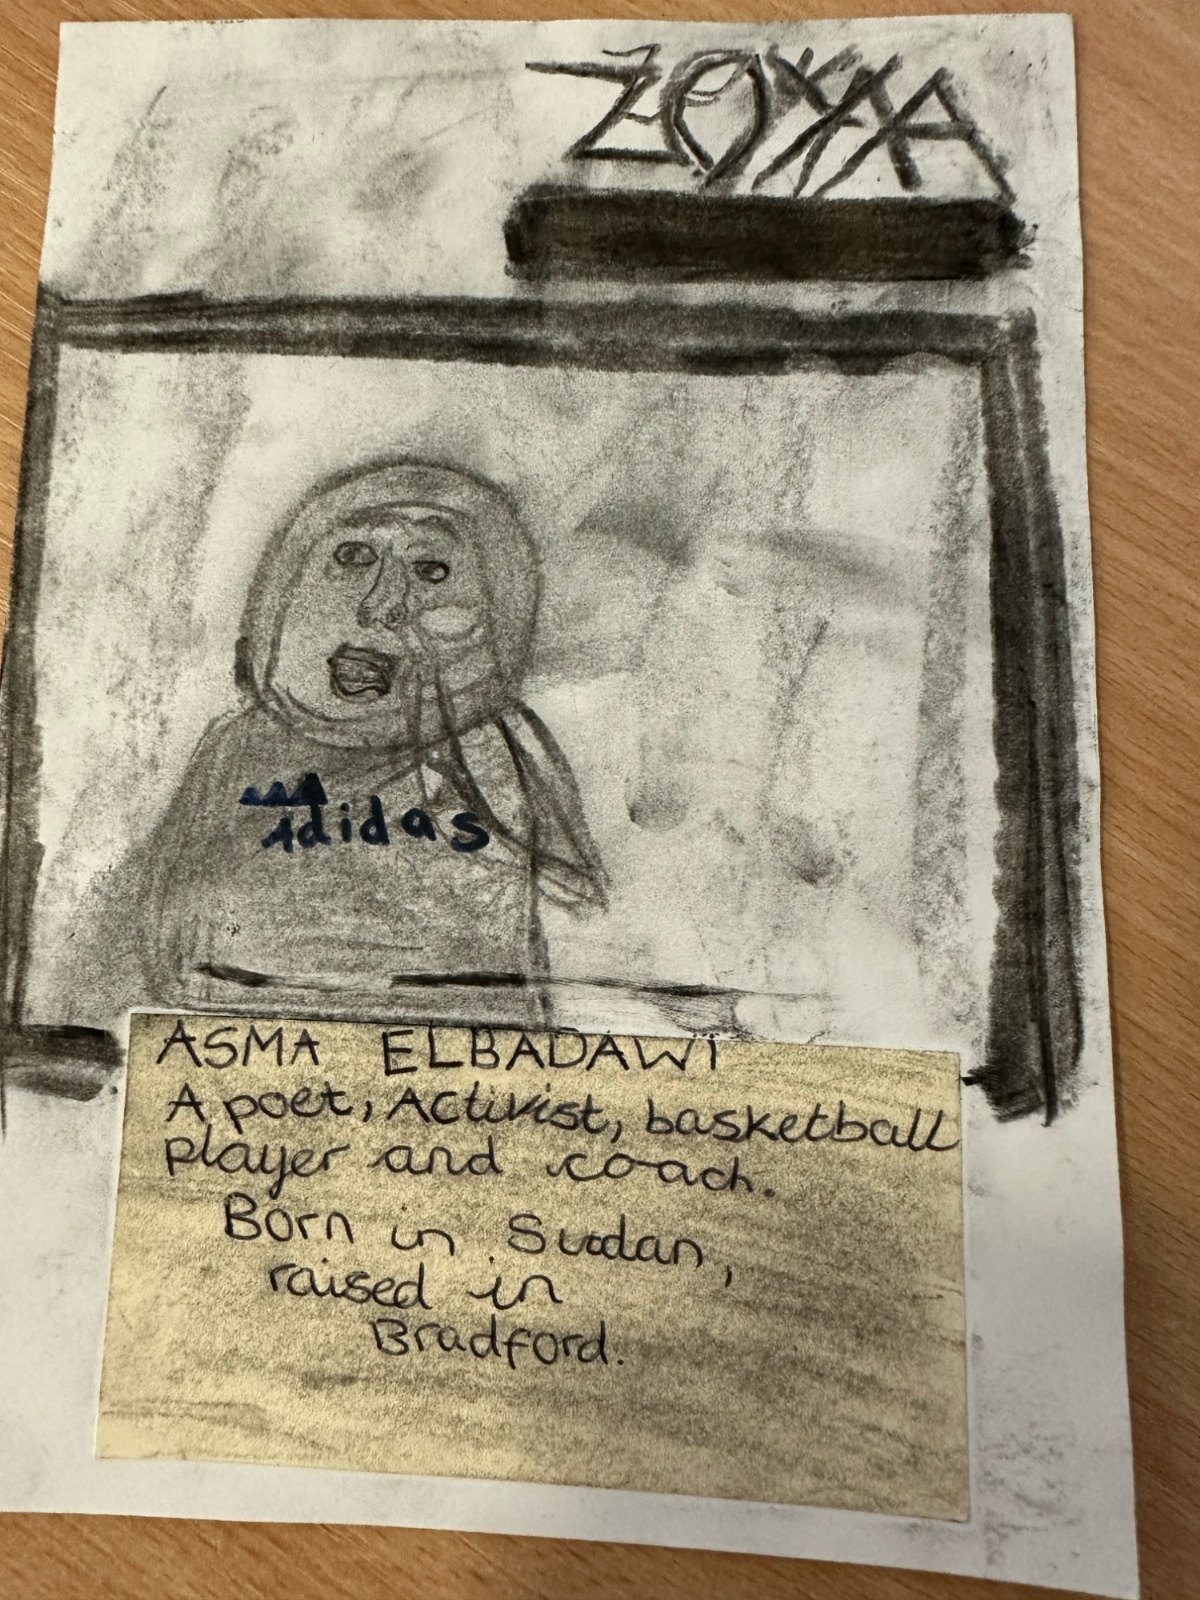 ZOYA
adidas
ASMA ELBADAWI
A poet, Activist, basketball
player and coach.
Born in Sudan,
raised in
Bradford.